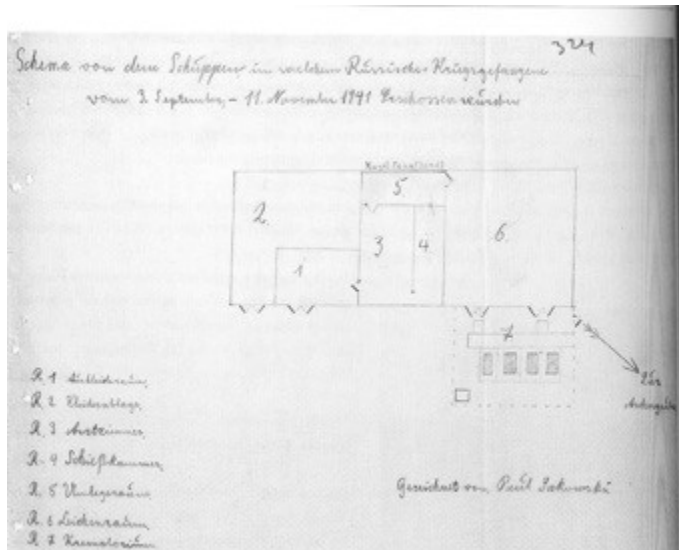 324
Schema von dem Schuppen in welchem Russische Kriegsgefangene
vom 3. September, - 11. November 1941 Erschossen würden
Kugelfang
2
5
3
4
6
1
7
Zur
Aschengrube
R. 1 Auskleideraum,
R. 2 Kleiderablage,
R. 3 Arztzimmer,
R. 4 Schießkammer,
R. 5 Umlegeraum
R. 6 Leichenraum
R. 7 Krematorium
Gezeichnet von Paul Sakowski